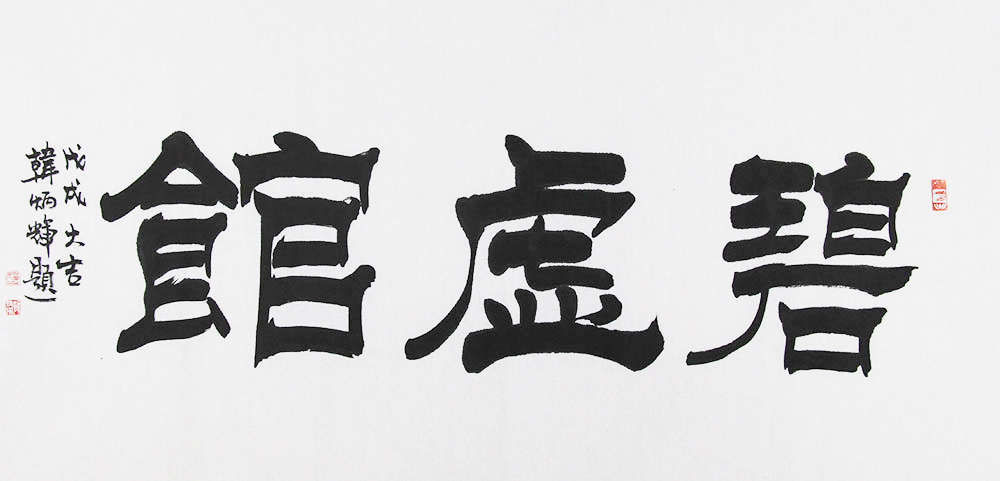 碧虛館
戊戌大吉
韓炳輝題